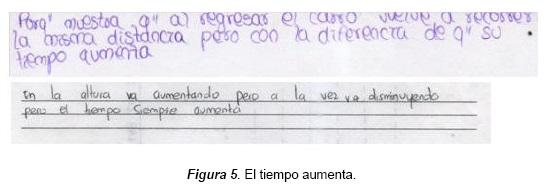 Porq' muestra q" al regresar el carro vuelve a recorrer
la misma distancia pero con la diferencia de q" su
tiempo aumenta
En la altura va aumentando pero a la vez va disminuyendo
pero el tiempo siempre aumenta
Figura 5. El tiempo aumenta.